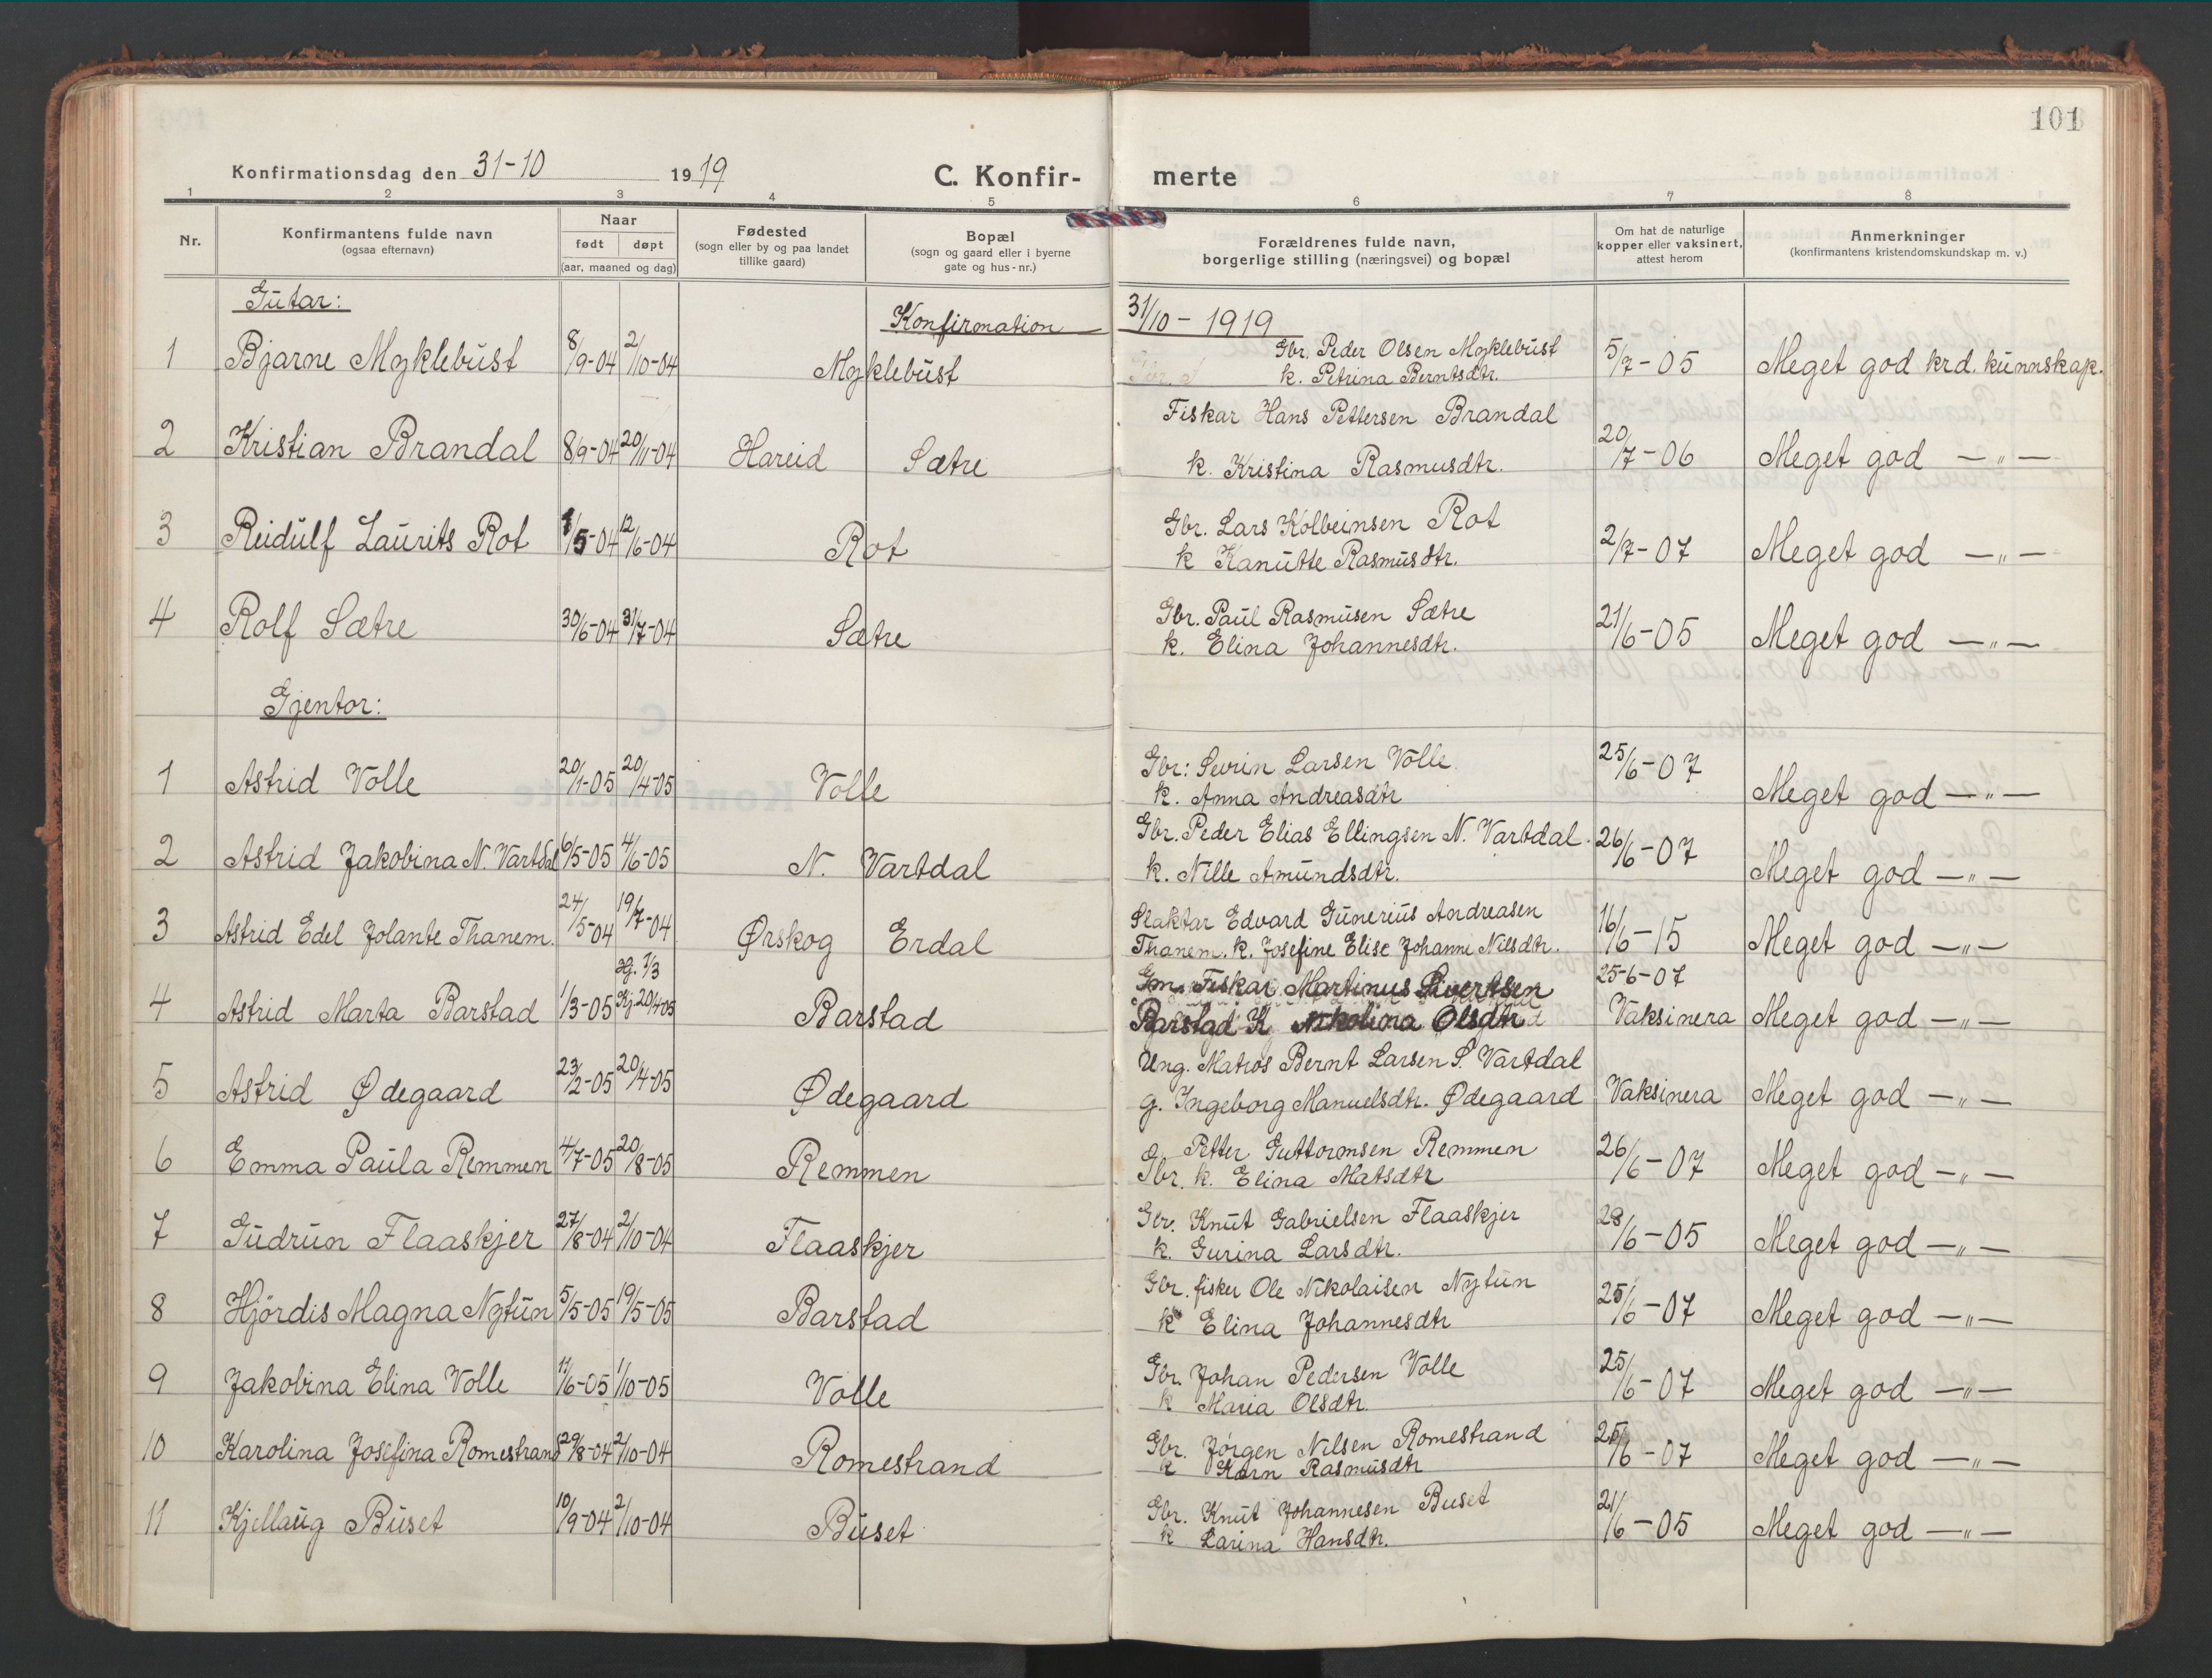 101
Konfirmationsdag den 31-10 1919 C. Konfir- merte
1 2 3 4 5 6 7 8
Nr. Konfirmantens fulde navn (ogsaa efternavn) Naar født døpt (aar, maaned og dag) Fødested (sogn eller by og paa landet tillike gaard) Bopæl (sogn og gaard eller i byerne gate og hus-nr.) Forældrenes fulde navn, borgerlige stilling (næringsvei) og bopæl Om hat de naturlige kopper eller vaksinert, attest herom Anmerkninger (konfirmantens kristendomskundskap m. v.)
Gutar:
Konfirmation 31/10 - 1919
1 Bjarne Myklebust 8/9-04 2/10-04 Myklebust Gbr. Peder Olsen Myklebust 5/7-05 Meget god krd. kunnskap.
k. Petrina Berntsdtr.
2 Kristian Brandal 8/9-04 20/11-04 Hareid Sætre Fiskar Hans Pettersen Brandal 20/7-06 Meget god —"—
k. Kristina Rasmusdtr.
3 Reidulf Laurits Rot 1/5-04 12/6-04 Rot Gbr. Lars Kolbeinsen Rot 2/7-07 Meget god —"—
k Kanutte Rasmusdtr.
4 Rolf Sætre 30/6-04 31/7-04 Sætre Gbr. Paul Rasmusen Sætre 21/6-05 Meget god —"—
k. Elina Johannesdtr.
Gjentor:
1 Astrid Volle 20/1-05 20/4-05 Volle Gbr: Sevrin Larsen Volle 25/6-07 Meget god —"—
k. Anna Andreasdtr
2 Astrid Jakobina N. Vartdal 6/5-05 4/6-05 N. Vartdal Gbr. Peder Elias Ellingsen N. Vartdal. 26/6-07 Meget god —"—
k. Nille Amundsdtr.
3 Astrid Edel Jolante Thanem. 24/5-04 19/7-04 Ørskog Erdal Slaktar Edvard Gunerius Andreasen 16/6-15 Meget god —"—
Thanem. k. Josefine Elise Johanne Nilsdtr.
4 Astrid Marta Barstad 1/3-05 Hj. 1/3 Kj. 20/4-05 Barstad Gm. Fiskar Martinus Sivertsen 25-6-07 Vaksinera Meget god —"—
Barstad K Nikolina Olsdtr
5 Astrid Ødegaard 23/2-05 20/4-05 Ødegaard Ung. Matros Bernt Larsen S. Vartdal Vaksinera Meget god —"—
g. Ingeborg Manuelsdtr. Ødegaard
6 Emma Paula Remmen 4/7-05 20/8-05 Remmen Petter Guttormsen Remmen 26/6-07 Meget god —"—
Gbr. k. Elina Matsdtr
7 Gudrun Flaaskjer 27/8-04 2/10-04 Flaaskjer Gbr. Knut Gabrielsen Flaaskjer 28/6-05 Meget god —"—
k. Gurina Larsdtr.
8 Hjördis Magna Nytun 5/5-05 19/5-05 Barstad Gbr. fisker Ole Nikolaisen Nytun 25/6-07 Meget god —"—
k Elina Johannesdtr
9 Jakobina Elina Volle 11/6-05 1/10-05 Volle Gbr. Johan Pedersen Volle 25/6-07 Meget god —"—
k Maria Olsdtr.
10 Karolina Josefina Romestrand 29/8-04 2/10-04 Romestrand Gbr. Jørgen Nilsen Romestrand 25/6-07 Meget god —"—
k Karn Rasmusdtr
11 Kjellaug Buset 10/9-04 2/10-04 Buset Gbr. Knut Johannesen Buset 21/6-05 Meget god —"—
k Larina Hansdtr.